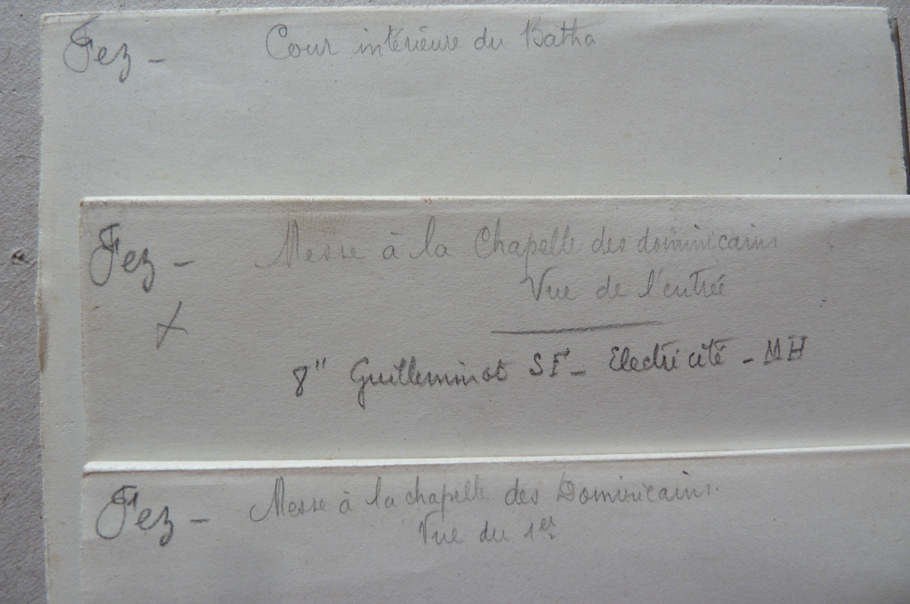 Fez - Cour intérieure du Batha
Fez - Messe à la Chapelle des dominicains
Vue de l'entrée
8" Guilleminot SF - Electricité - MH
Fez - Messe à la chapelle des Dominicains.
Vue du 1er